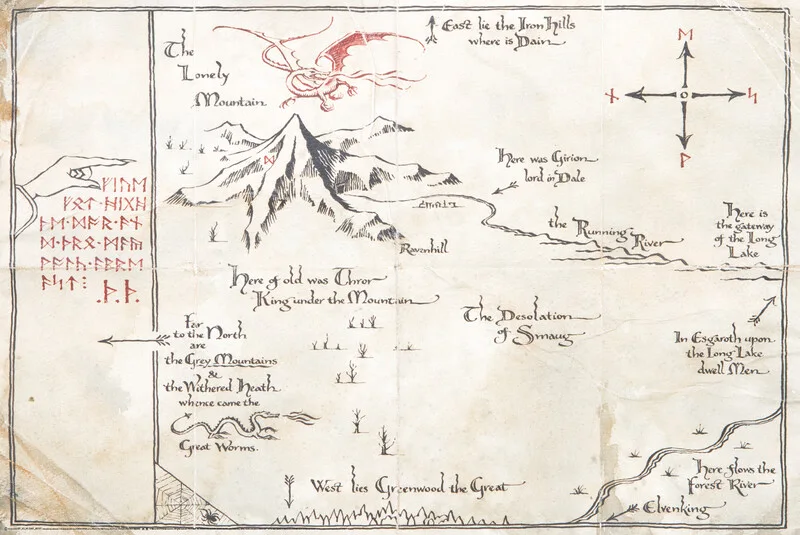 East lie the Iron Hills
where is Dain
The
Lonely
Mountain
ᛖ
ᚾ
ᛋ
ᚹ
ᛞ
ᚠᛁᚢᛖ
ᚠᛟᛏ·ᚻᛁᚷᚻ
ᚦᛖ·ᛞᚩᚱ·ᚫᚾ
ᛞ·ᚦᚱᛟ·ᛗᚫᚣ
ᚹᚫᛚᚳ·ᚫᛒᚱᛖ
ᚫᛋᛏ⋮
.ᚦ.ᚦ.
Here was Girion
lord in Dale
the Running
River
Here is
the gateway
of the Long
Lake
Ravenhill
Here of old was Thror
King under the Mountain
The Desolation
of Smaug
Far
to the North
are
the Grey Mountains
&
the Withered Heath
whence came the
Great Worms.
In Esgaroth upon
the Long Lake
dwell Men
Here flows the
Forest River
Elvenking
West lies Greenwood the Great